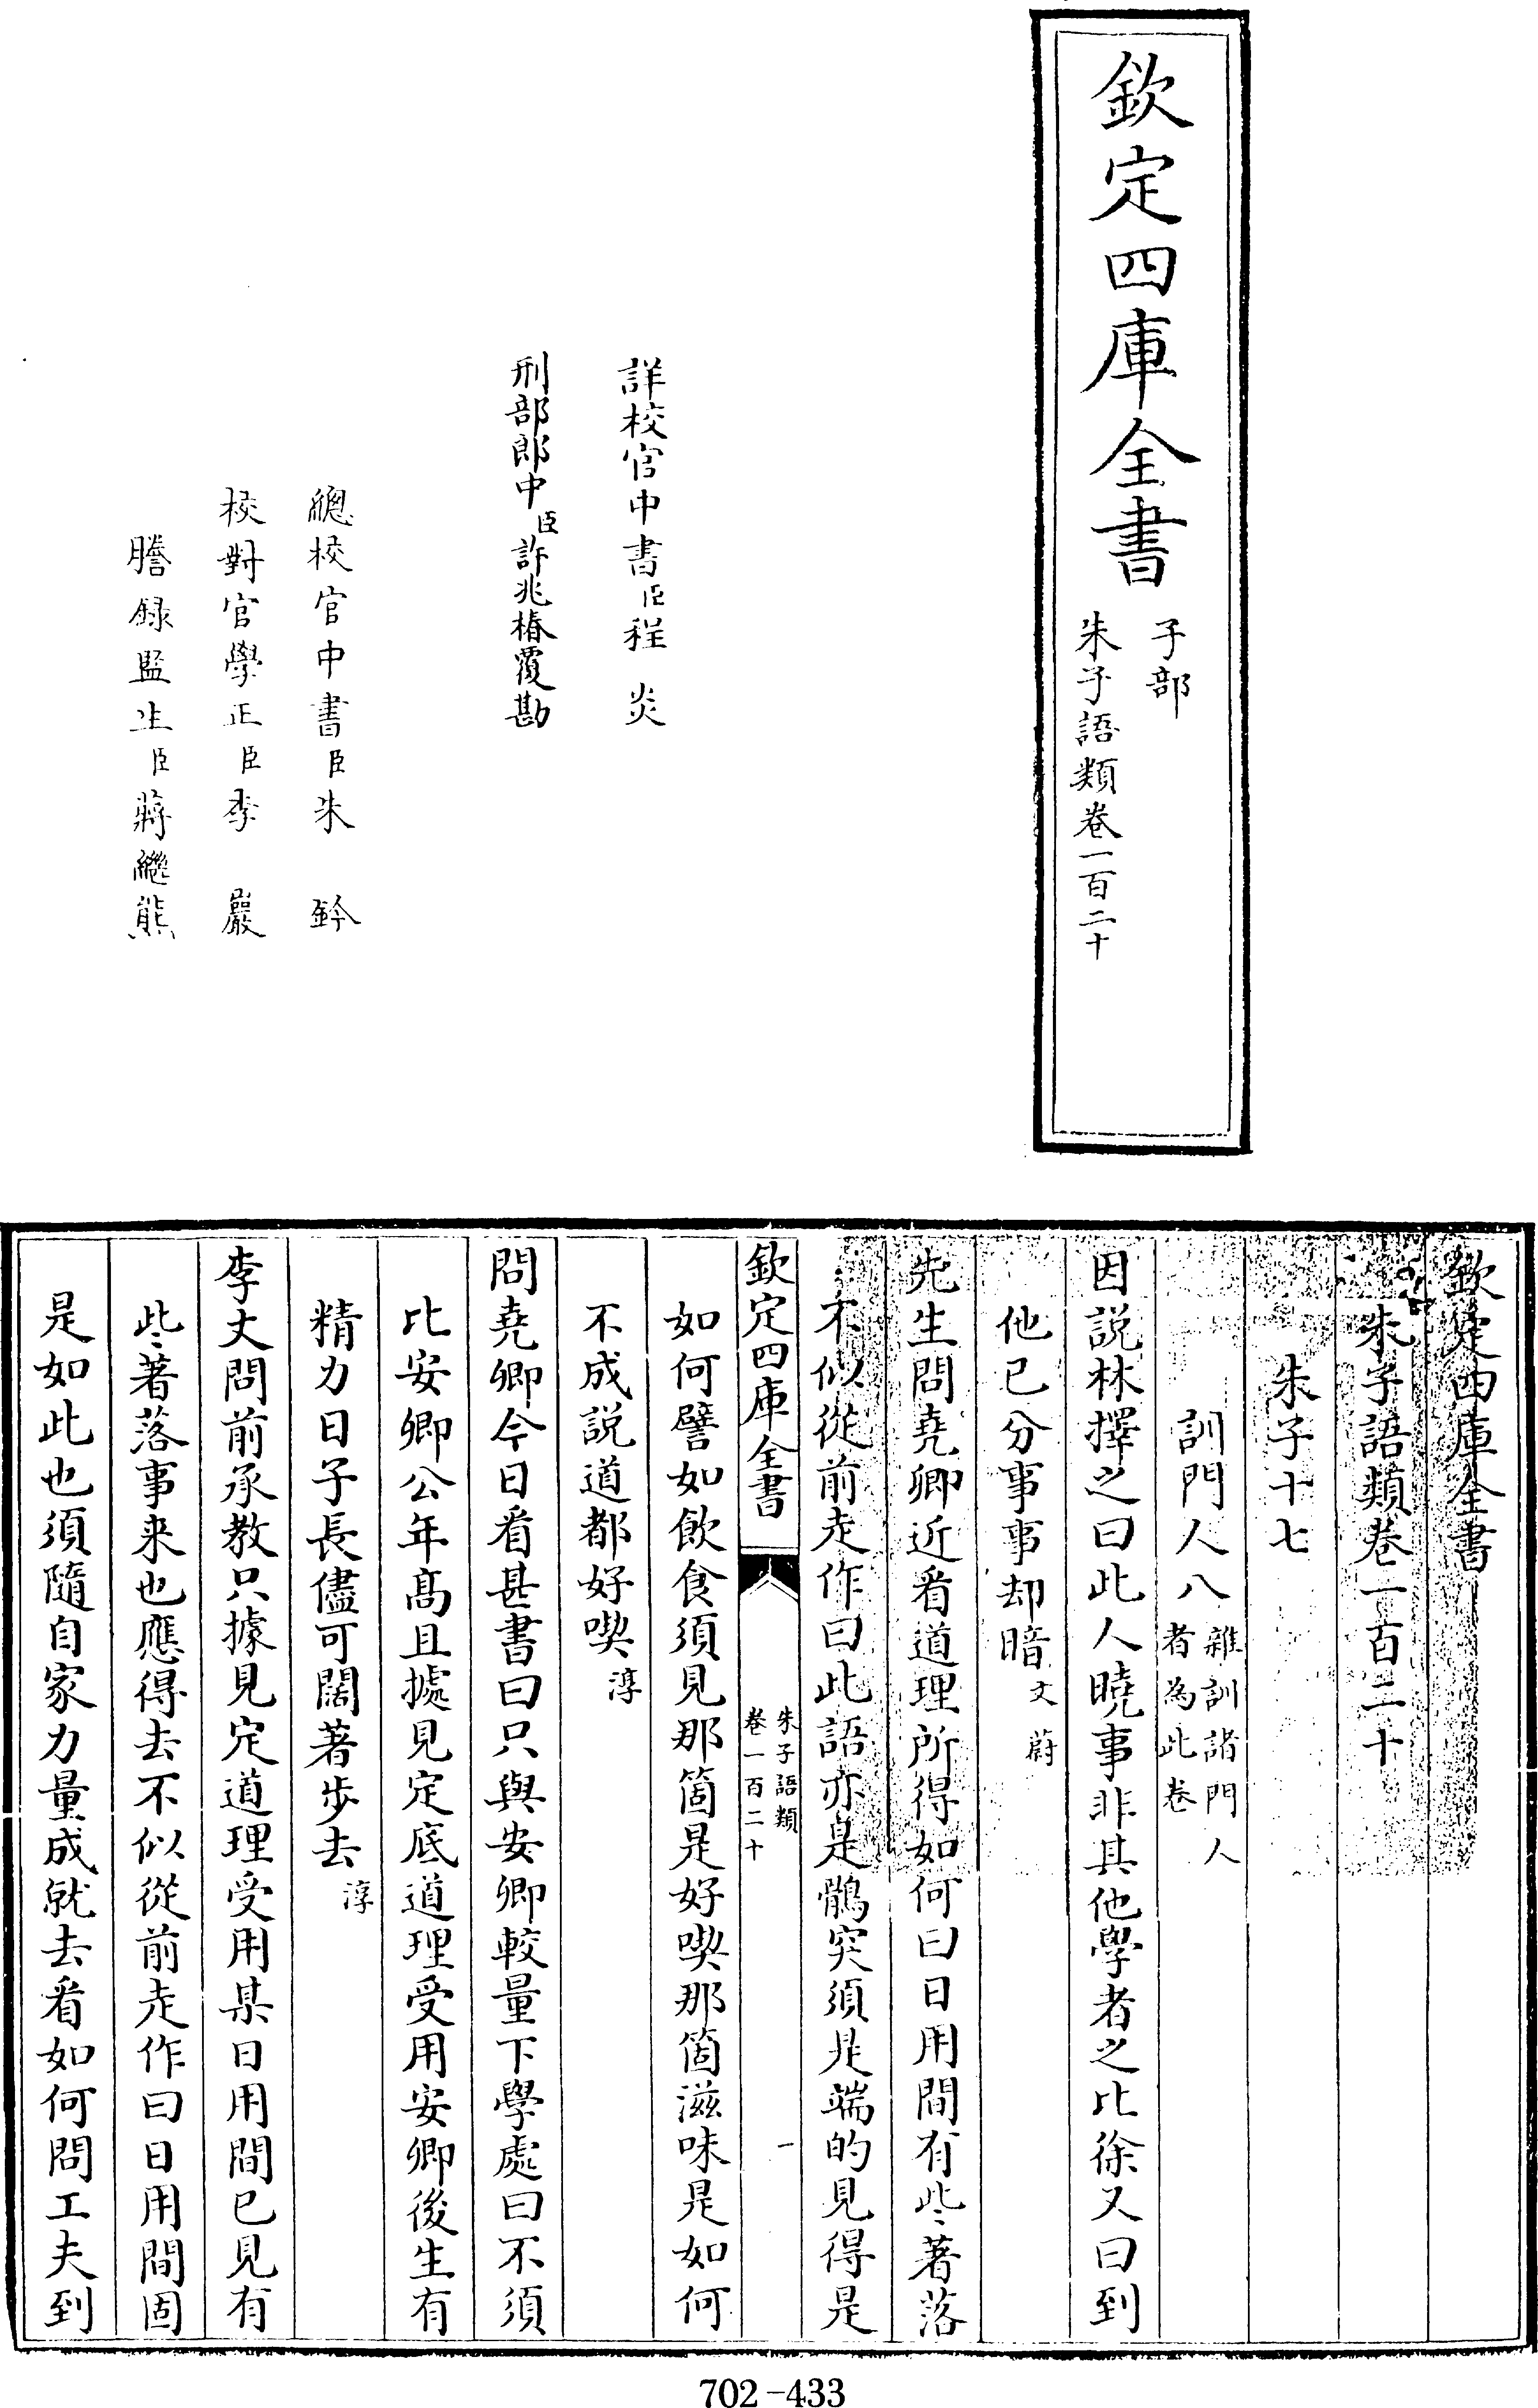 欽定四庫全書
子部
朱子語類卷一百二十
詳校官中書臣程炎
刑部郎中臣許兆椿覆勘
總校官中書臣朱鈐
校對官學正臣李巖
謄録監生臣蔣繼熊
欽定四庫全書
朱子語類卷一百二十
朱子十七
訓門人八雜訓諸門人者為此卷
因説林擇之曰此人曉事非其他學者之比徐又曰到
他已分事事却暗文蔚
先生問堯卿近看道理所得如何曰日用間有些著落
不似從前走作曰此語亦是鶻突須是端的見得是
欽定四庫全書
朱子語類
卷一百二十
一
如何譬如飲食須見那箇是好喫那箇滋味是如何
不成説道都好喫淳
問堯卿今日看甚書曰只與安卿較量下學處曰不須
比安卿公年髙且據見定底道理受用安卿後生有
精力日子長儘可闊著步去淳
李丈問前承教只據見定道理受用某日用間已見有
些著落事来也應得去不似從前走作曰日用間固
是如此也須隨自家力量成就去看如何問工夫到
702-433